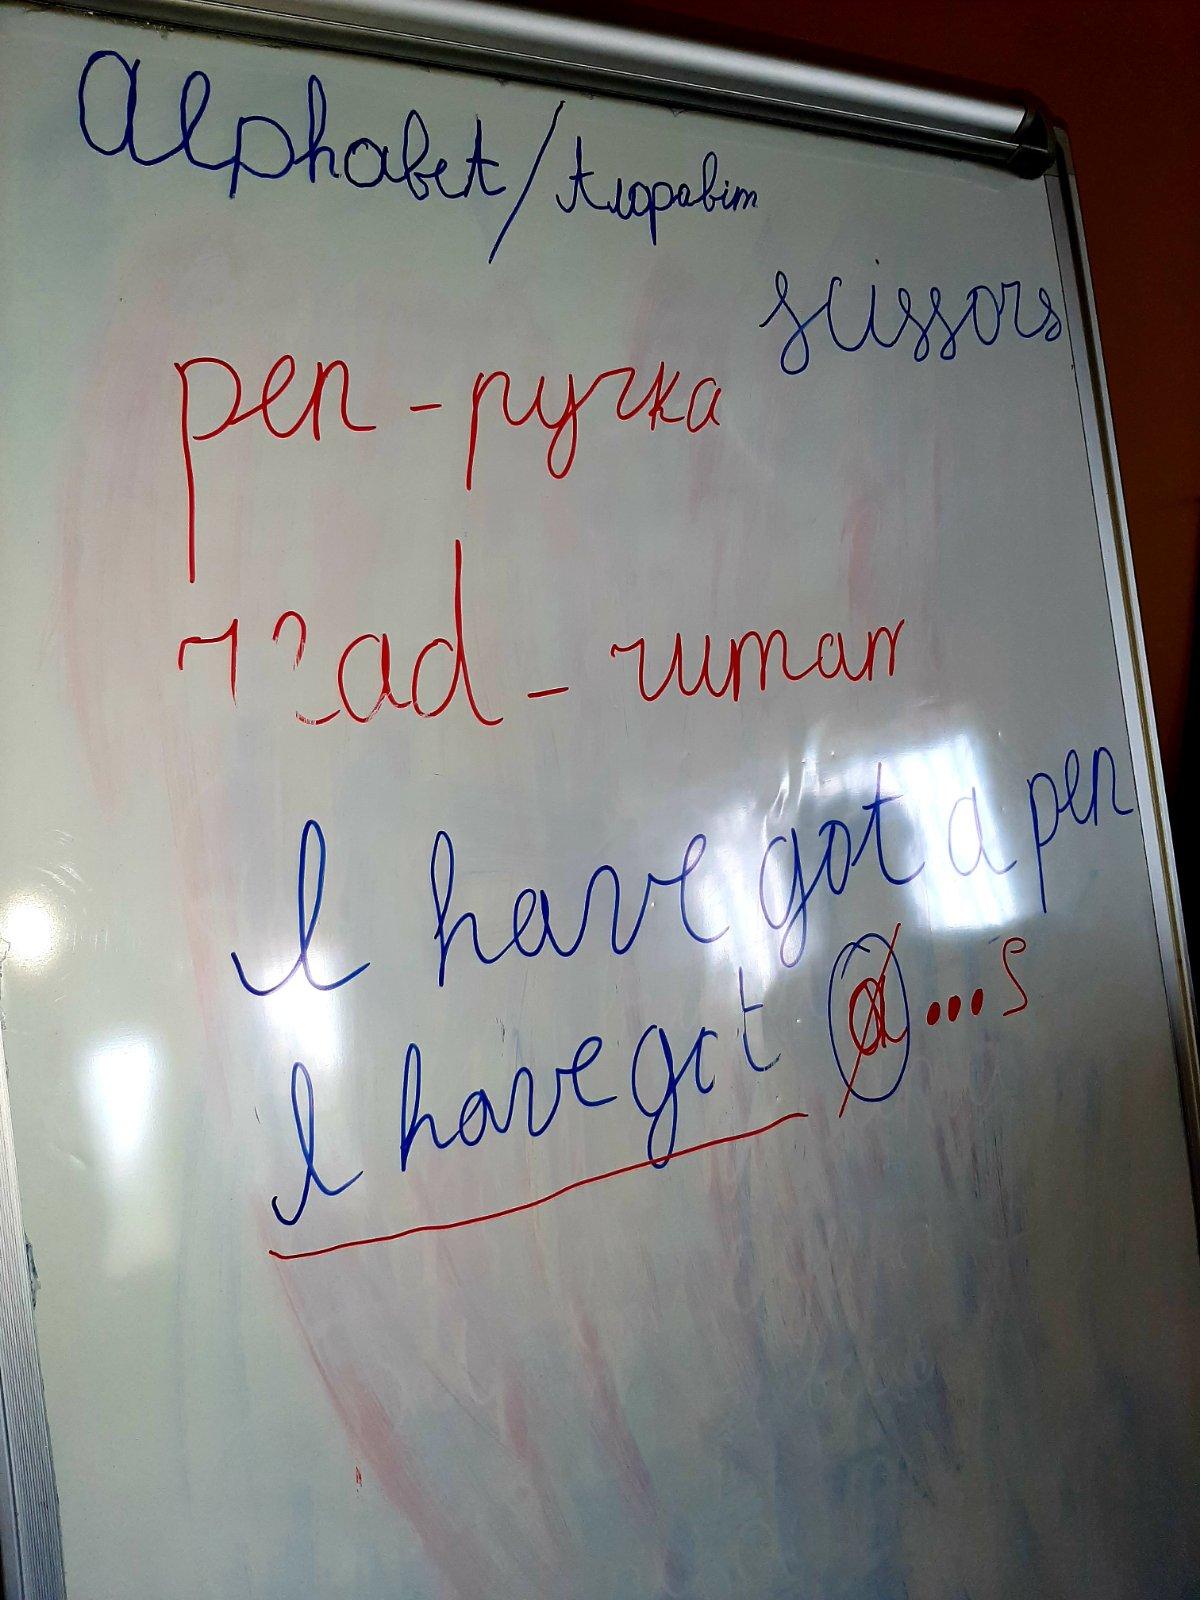 Alphabet/Алфавіт
scissors
pen - ручка
read - читати
I have got a pen
I have got a ...s